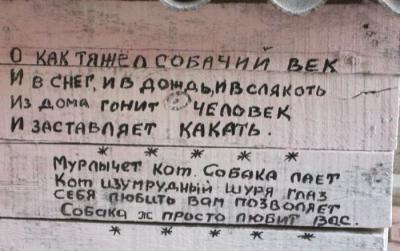 О КАК ТЯЖЁЛ СОБАЧИЙ ВЕК
И В СНЕГ, И В ДОЖДЬ, И В СЛЯКОТЬ
ИЗ ДОМА ГОНИТ ЧЕЛОВЕК
И ЗАСТАВЛЯЕТ КАКАТЬ.
* * * * *
МУРЛЫЧЕТ КОТ. СОБАКА ЛАЕТ
КОТ ИЗУМРУДНЫЙ ЩУРЯ ГЛАЗ
СЕБЯ ЛЮБИТЬ ВАМ ПОЗВОЛЯЕТ
СОБАКА Ж ПРОСТО ЛЮБИТ ВАС.
* * * * *